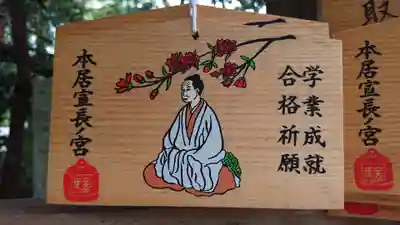 学業成就
合格祈願
本居宣長ノ宮
本居宣長ノ宮
取